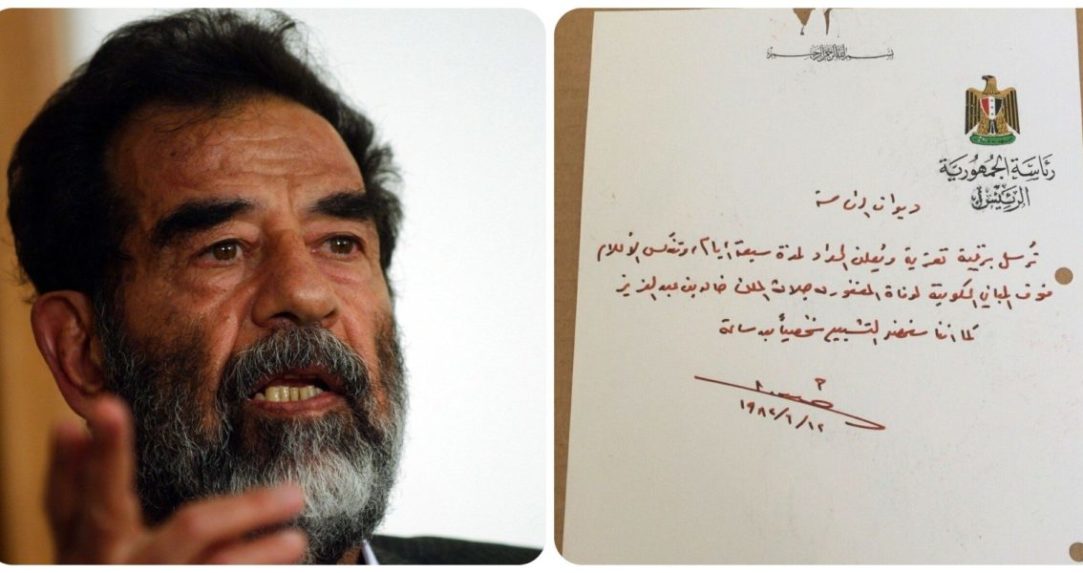 بسم الله الرحمن الرحيم
رئاسة الجمهورية
الرئيس
ديوان الرئاسة
تُرسل برقية تعزية ويُعلن الحداد لمدة سبعة أيام، وتنكس الأعلام
فوق المباني الحكومية لوفاة المغفور له جلالة الملك خالد بن عبد العزيز
كما اننا سنحضر التشييع شخصياً
١٩٨٢/٦/١٢